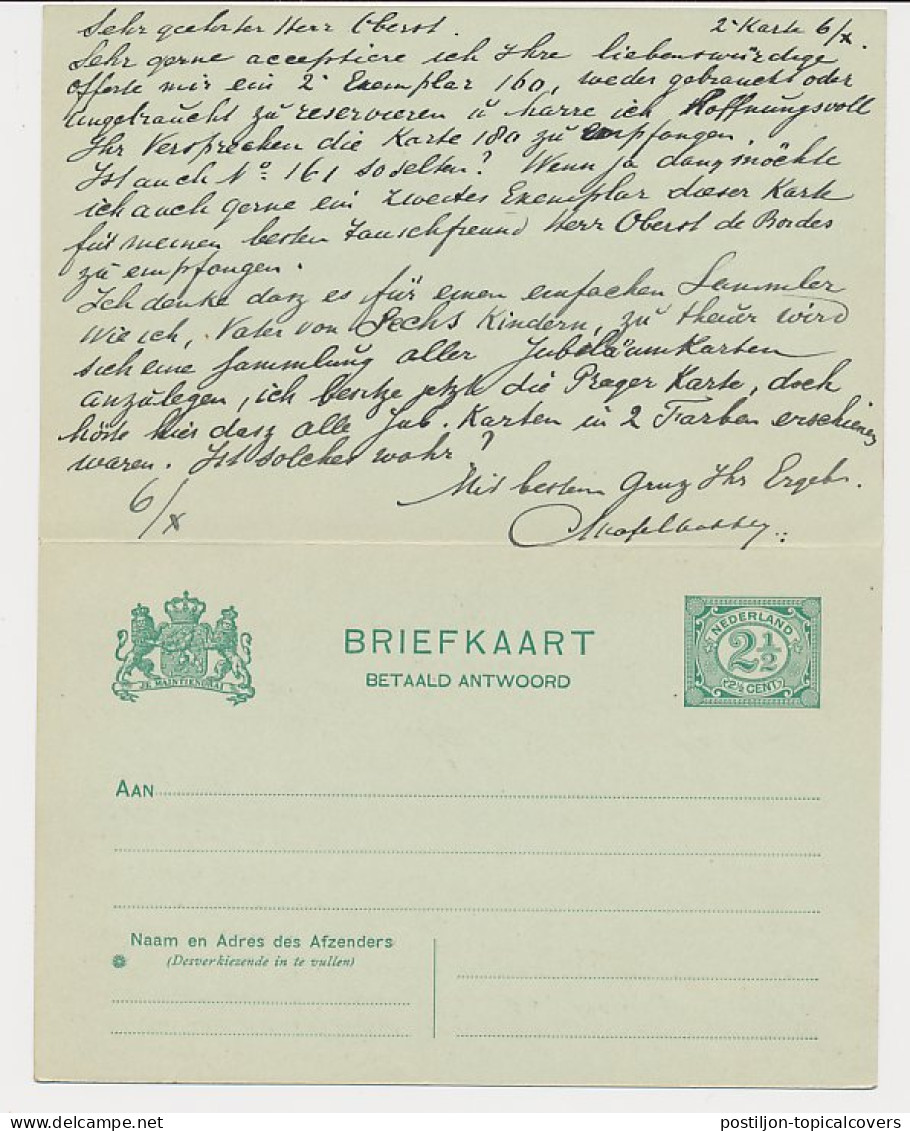 Sehr geehrter Herr Oberst. 2e Karte 6/x.
Sehr gerne acceptiere ich Ihre liebenswürdige
offerte mir ein 2e Exemplar 160, weder gebraucht oder
ungebraucht zu reservieren u harre ich Hoffnungsvoll
Ihr Versprechen die Karte 180 zu empfangen.
Ist auch No 161 so selten? Wenn ja dann möchte
ich auch gerne ein zweites Exemplar dieser Karte
für meinen besten Tauschfreund Herr Oberst de Bordes
zu empfangen.
Ich denke dasz es für einen einfachen Sammler
wie ich, Vater von Sechs Kindern, zu theür wird
sich eine Sammlung aller Jubeläum Karten
anzulegen, ich besitze jetzt die Prager Karte, doch
höre hier dasz alle Jub. Karten in 2 Farben erschienen
waren. Ist solches wahr?
Mit bestem Grusz Ihr Ergeb.
6/x
BRIEFKAART
BETAALD ANTWOORD
JE MAINTIENDRAI
NEDERLAND
2½
(2½ CENT)
AAN
Naam en Adres des Afzenders
(Desverkiezende in te vullen)
postiljon-topicalcovers